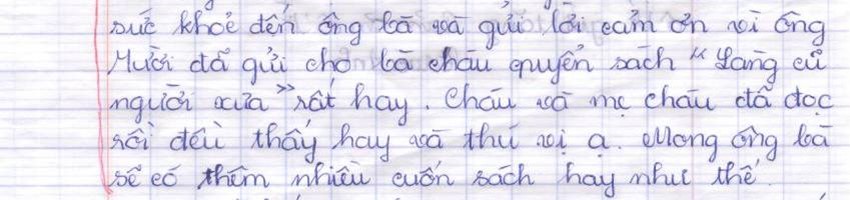 sức khoẻ đến ông bà và gửi lời cảm ơn vì ông
Mười đã gửi cho bà cháu quyển sách "Làng cũ
người xưa" rất hay. Cháu và mẹ cháu đã đọc
rồi đều thấy hay và thú vị ạ. Mong ông bà
sẽ có thêm nhiều cuốn sách hay như thế.